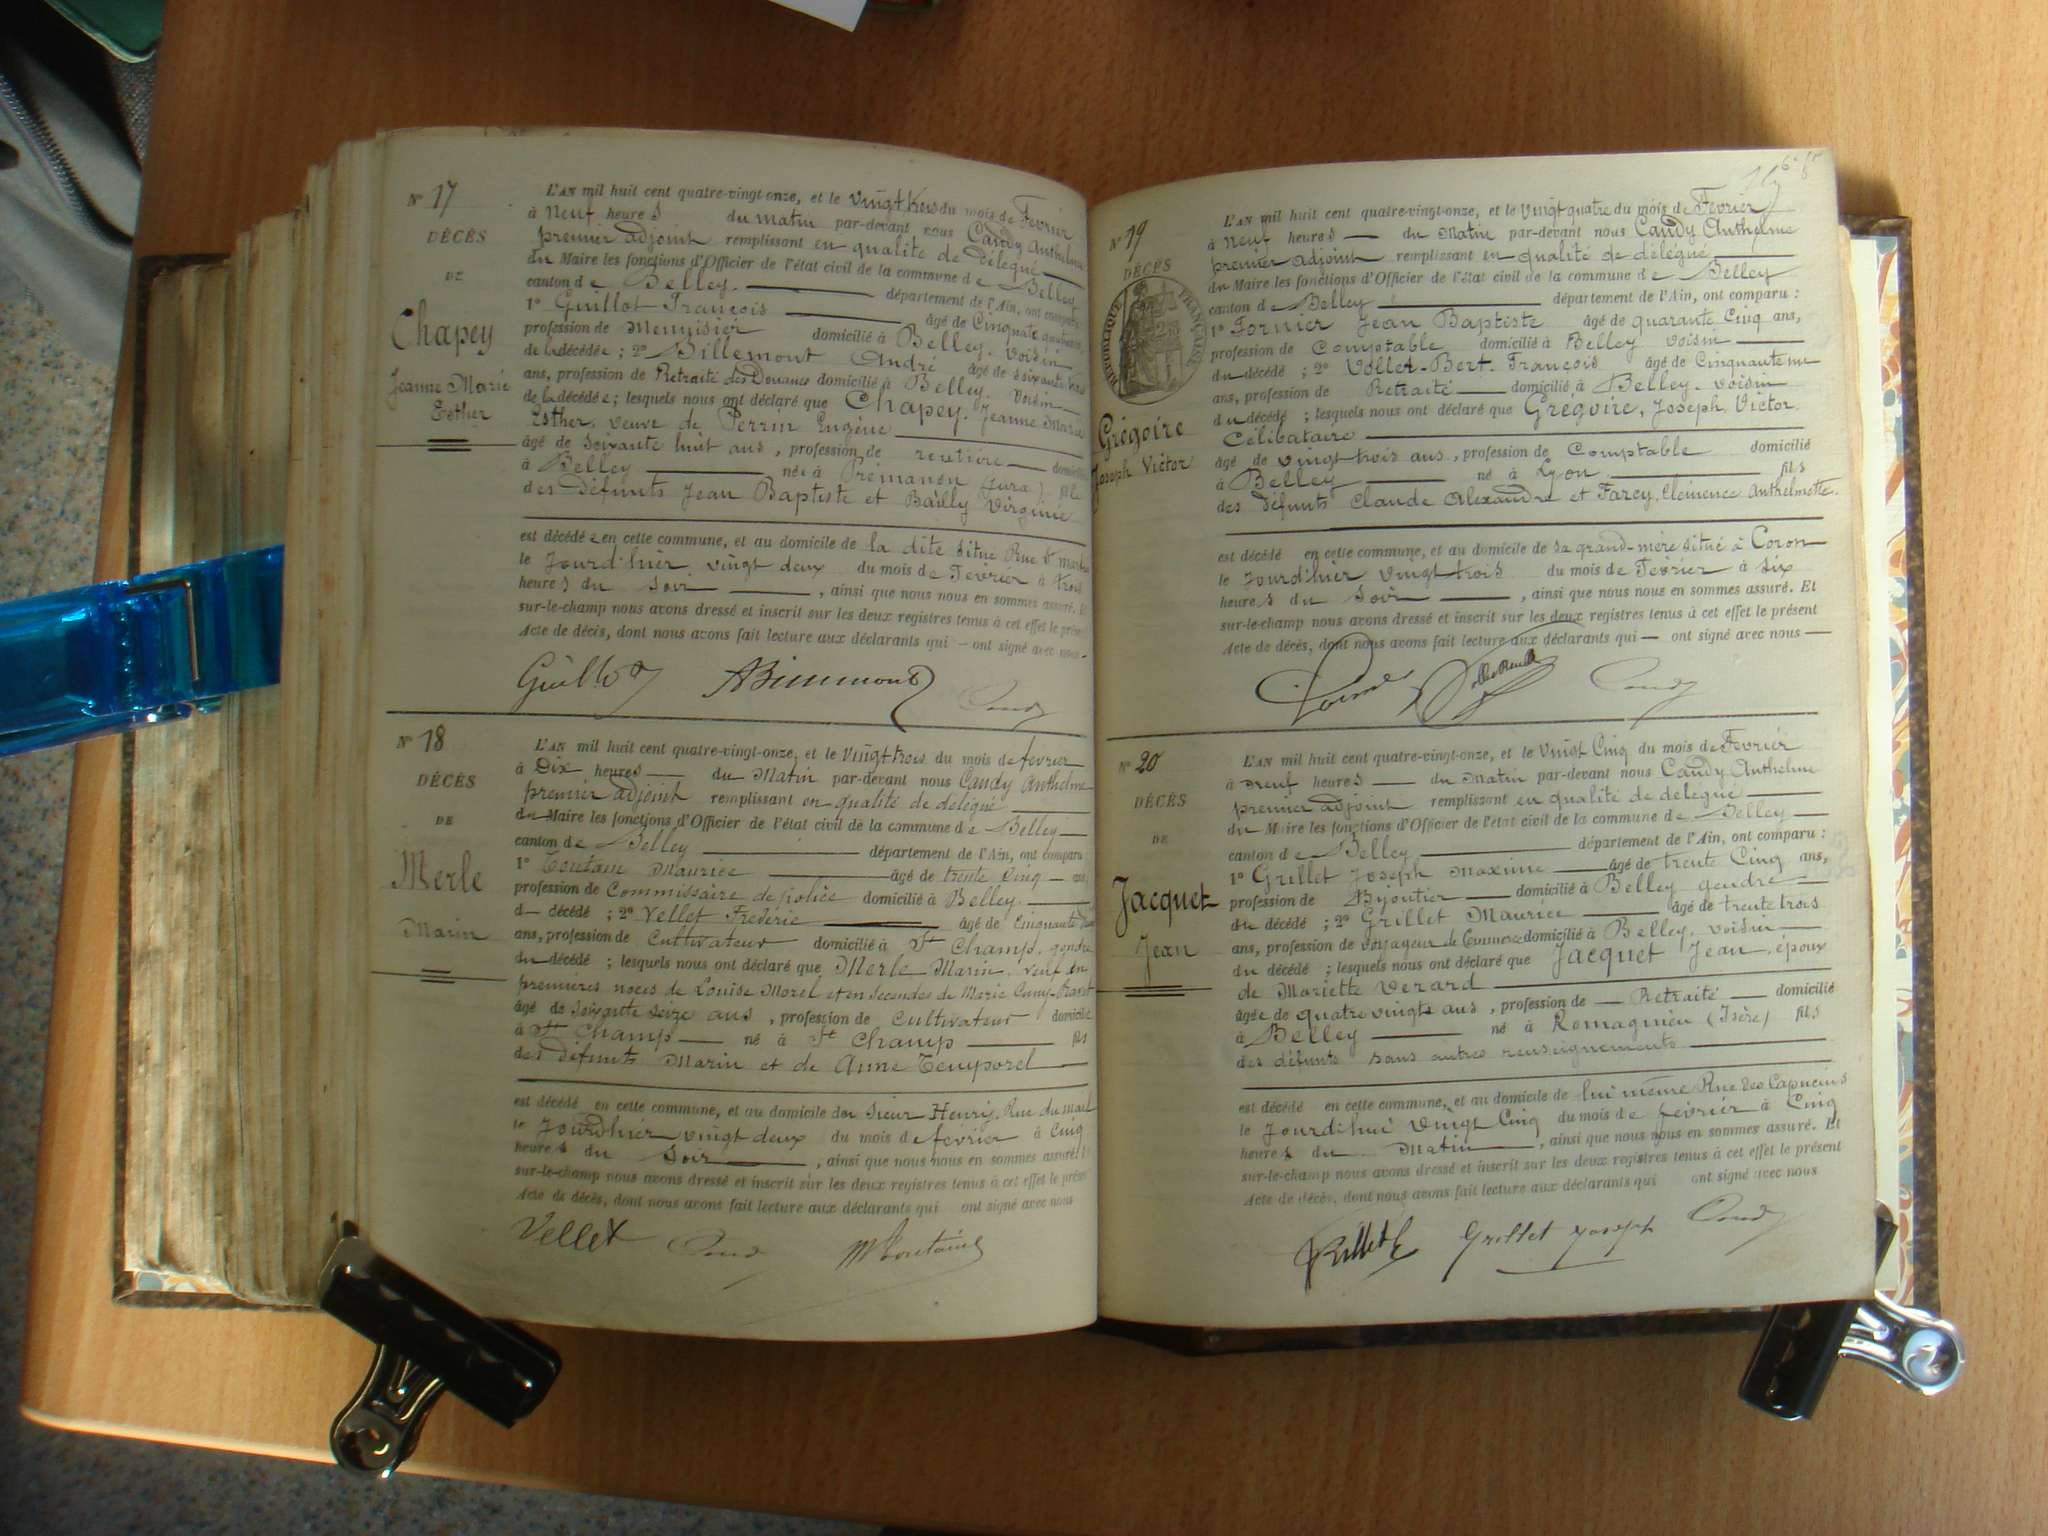 Nº 17
DÉCÈS
DE
Chapey
Jeanne Marie
Esther
L'AN mil huit cent quatre-vingt-onze, et le vingt trois du mois de Fevrier
à Neuf heures du matin par-devant nous Candy Anthelme
premier adjoint remplissant en qualité de délégué
du Maire les fonctions d'Officier de l'état civil de la commune de Belley
canton de Belley. département de l'Ain, ont comparu
1º Guillot François âgé de Cinquante
profession de Menuisier domicilié à Belley. voisin
de la décédée ; 2º Billemont André âgé de soixante
ans, profession de Retraité des Douanes domicilié à Belley. voisin
de la décédée ; lesquels nous ont déclaré que Chapey. Jeanne Marie
Esther. veuve de Perrin Eugène
âgé de soixante huit ans, profession de rentière
à Belley née à Prémanon (Jura) fille
des défunts Jean Baptiste et Bailly Virginie
est décédée en cette commune, et au domicile de la dite situé Rue St
le Jourd'hier vingt deux du mois de Fevrier à trois
heures du Soir , ainsi que nous nous en sommes assuré. Et
sur-le-champ nous avons dressé et inscrit sur les deux registres tenus à cet effet le présent
Acte de décès, dont nous avons fait lecture aux déclarants qui – ont signé avec nous
Guillot Candy
Nº 18
DÉCÈS
DE
Merle
Marin
L'AN mil huit cent quatre-vingt-onze, et le vingt trois du mois de fevrier
à Dix heures du Matin par-devant nous Candy Anthelme
premier adjoint remplissant en qualité de délégué
du Maire les fonctions d'Officier de l'état civil de la commune de Belley
canton de Belley département de l'Ain, ont comparu
1º Toutain Maurice âgé de trente Cinq ans
profession de Commissaire de police domicilié à Belley.
d décédé ; 2º Vellet Frédéric âgé de Cinquante
ans, profession de Cultivateur domicilié à St Champ. gendre
du décédé ; lesquels nous ont déclaré que Merle Marin. veuf en
premières noces de Louise Morel et en secondes de Marie
âgé de soixante seize ans, profession de Cultivateur domicilié
à St Champ né à St Champ fils
des défunts Marin et de Anne Temporel
est décédé en cette commune, et au domicile du Sieur Henry, Rue du Mail
le Jourdhier vingt deux du mois de février à Cinq
heures du Soir , ainsi que nous nous en sommes assuré. Et
sur-le-champ nous avons dressé et inscrit sur les deux registres tenus à cet effet le présent
Acte de décès, dont nous avons fait lecture aux déclarants qui ont signé avec nous
Vellet Candy M Toutain
Nº 19
DÉCÈS
RÉPUBLIQUE FRANÇAISE
Grégoire
Joseph Victor
L'AN mil huit cent quatre-vingt-onze, et le Vingt quatre du mois de Fevrier
à Neuf heures du Matin par-devant nous Candy Anthelme
premier adjoint remplissant en qualité de délégué
du Maire les fonctions d'Officier de l'état civil de la commune de Belley
canton de Belley département de l'Ain, ont comparu :
1º Fornier Jean Baptiste âgé de quarante Cinq ans,
profession de Comptable domicilié à Belley voisin
du décédé ; 2º Vollet-Bert. François âgé de Cinquante un
ans, profession de Retraité domicilié à Belley. voisin
du décédé ; lesquels nous ont déclaré que Grégoire, Joseph, Victor.
Célibataire
âgé de vingt trois ans, profession de Comptable domicilié
à Belley né à Lyon fils
des défunts Claude Alexandre et Farey, Clémence Anthelmette.
est décédé en cette commune, et au domicile de sa grand-mère situé à Coron
le Jourd'hier vingt trois du mois de Fevrier à six
heures du Soir , ainsi que nous nous en sommes assuré. Et
sur-le-champ nous avons dressé et inscrit sur les deux registres tenus à cet effet le présent
Acte de décès, dont nous avons fait lecture aux déclarants qui — ont signé avec nous —
Candy
Nº 20
DÉCÈS
DE
Jacquet
Jean
L'AN mil huit cent quatre-vingt-onze, et le Vingt Cinq du mois de Fevrier
à neuf heures du Matin par-devant nous Candy Anthelme
premier adjoint remplissant en qualité de délégué
du Maire les fonctions d'Officier de l'état civil de la commune de Belley
canton de Belley département de l'Ain, ont comparu :
1º Grillet Joseph Maxime âgé de trente Cinq ans,
profession de Bijoutier domicilié à Belley gendre
du décédé ; 2º Grillet Maurice âgé de trente trois
ans, profession de voyageur de Commerce domicilié à Belley. voisin
du décédé ; lesquels nous ont déclaré que Jacquet Jean, époux
de Mariette Verard
âgé de quatre vingts ans, profession de — Retraité — domicilié
à Belley né à Romagnieu (Isère) fils
des défunts sans autres renseignements
est décédé en cette commune, et au domicile de lui même Rue des Capucins
le Jourd'hui Vingt Cinq du mois de février à Cinq
heures du Matin , ainsi que nous nous en sommes assuré. Et
sur-le-champ nous avons dressé et inscrit sur les deux registres tenus à cet effet le présent
Acte de décès, dont nous avons fait lecture aux déclarants qui ont signé avec nous
Grillet Joseph Candy